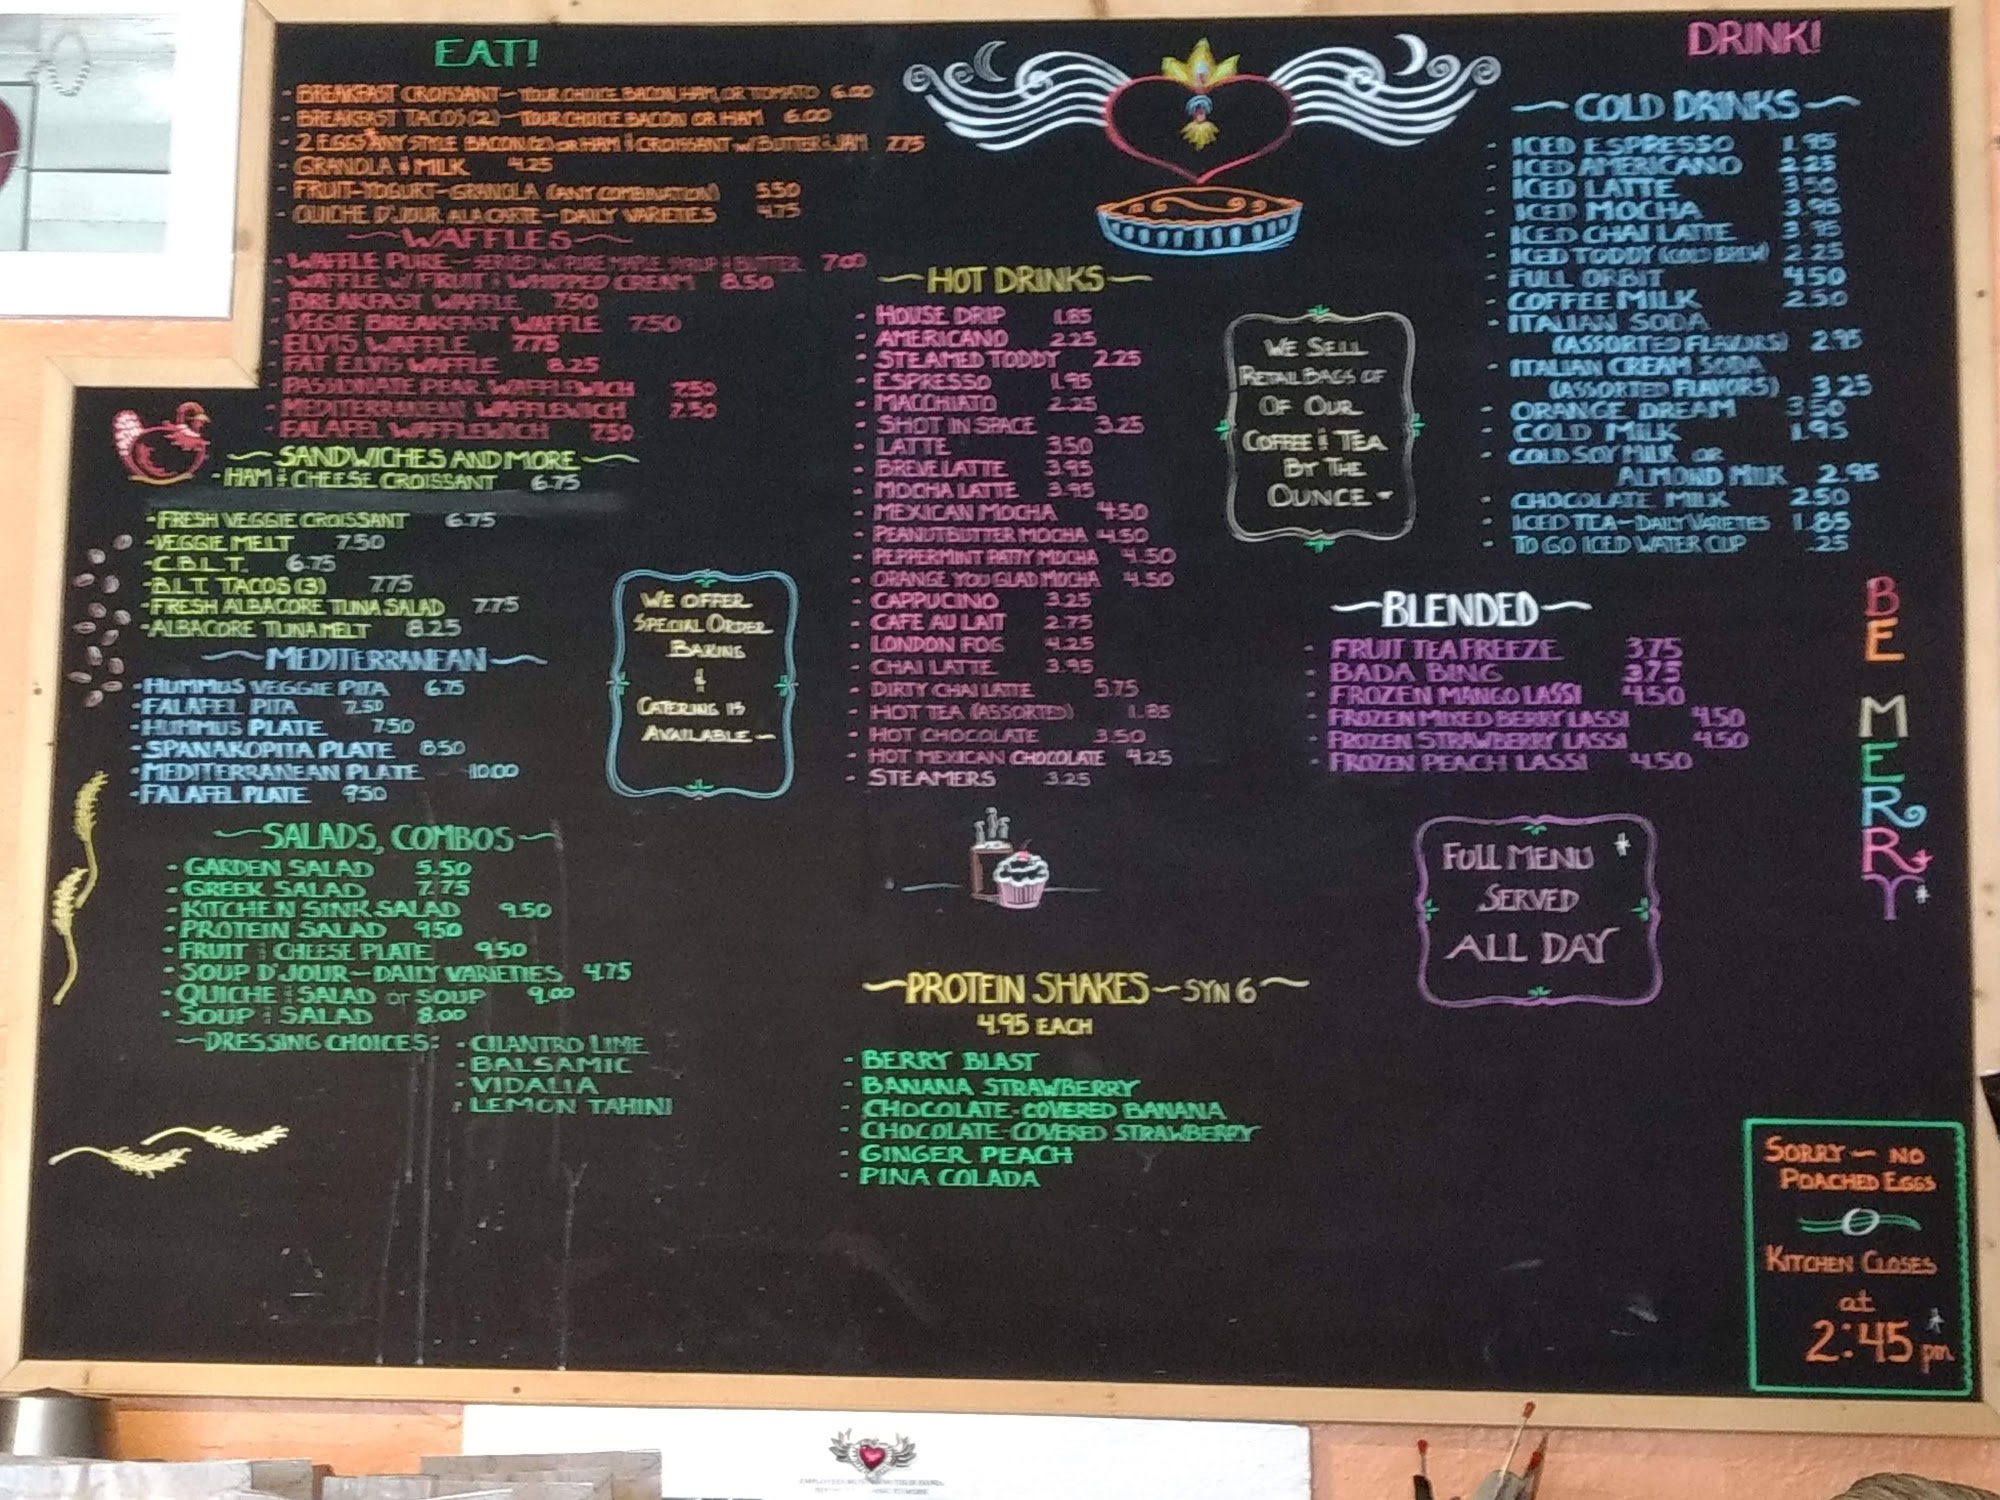 EAT!
- BREAKFAST CROISSANT - YOUR CHOICE BACON, HAM, OR TOMATO 6.00
- BREAKFAST TACOS (2) - YOUR CHOICE BACON OR HAM 6.00
- 2 EGGS ANY STYLE BACON (2) OR HAM & CROISSANT W/ BUTTER & JAM 7.75
- GRANOLA & MILK 4.25
- FRUIT-YOGURT-GRANOLA (ANY COMBINATION) 5.50
- QUICHE D'JOUR, ALA CARTE - DAILY VARIETIES 4.75
~WAFFLES~
- WAFFLE PURE - SERVED W/ PURE MAPLE SYRUP & BUTTER 7.00
- WAFFLE W/ FRUIT & WHIPPED CREAM 8.50
- BREAKFAST WAFFLE 7.50
- VEGIE BREAKFAST WAFFLE 7.50
- ELVIS WAFFLE 7.75
- FAT ELVIS WAFFLE 8.25
- PASSIONATE PEAR WAFFLEWICH 7.50
- MEDITERRANEAN WAFFLEWICH 7.50
- FALAFEL WAFFLEWICH 7.50
~SANDWICHES AND MORE~
- HAM & CHEESE CROISSANT 6.75
- FRESH VEGGIE CROISSANT 6.75
- VEGGIE MELT 7.50
- C.B.L.T. 6.75
- B.L.T. TACOS (3) 7.75
- FRESH ALBACORE TUNA SALAD 7.75
- ALBACORE TUNA MELT 8.25
~MEDITERRANEAN~
- HUMMUS VEGGIE PITA 6.75
- FALAFEL PITA 7.50
- HUMMUS PLATE 7.50
- SPANAKOPITA PLATE 8.50
- MEDITERRANEAN PLATE 10.00
- FALAFEL PLATE 9.50
~SALADS, COMBOS~
- GARDEN SALAD 5.50
- GREEK SALAD 7.75
- KITCHEN SINK SALAD 9.50
- PROTEIN SALAD 9.50
- FRUIT & CHEESE PLATE 9.50
- SOUP D'JOUR - DAILY VARIETIES 4.75
- QUICHE & SALAD or SOUP 9.00
- SOUP & SALAD 8.00
~DRESSING CHOICES: - CILANTRO LIME
- BALSAMIC
- VIDALIA
- LEMON TAHINI
WE OFFER
SPECIAL ORDER
BAKING
&
CATERING IS
AVAILABLE ~
~HOT DRINKS~
- HOUSE DRIP 1.85
- AMERICANO 2.25
- STEAMED TODDY 2.25
- ESPRESSO 1.95
- MACCHIATO 2.25
- SHOT IN SPACE 3.25
- LATTE 3.50
- BREVE LATTE 3.95
- MOCHA LATTE 3.95
- MEXICAN MOCHA 4.50
- PEANUTBUTTER MOCHA 4.50
- PEPPERMINT PATTY MOCHA 4.50
- ORANGE YOU GLAD MOCHA 4.50
- CAPPUCINO 3.25
- CAFE AU LAIT 2.75
- LONDON FOG 4.25
- CHAI LATTE 3.95
- DIRTY CHAI LATTE 5.75
- HOT TEA (ASSORTED) 1.85
- HOT CHOCOLATE 3.50
- HOT MEXICAN CHOCOLATE 4.25
- STEAMERS 3.25
~PROTEIN SHAKES~ SYN 6~
4.95 EACH
- BERRY BLAST
- BANANA STRAWBERRY
- CHOCOLATE-COVERED BANANA
- CHOCOLATE-COVERED STRAWBERRY
- GINGER PEACH
- PINA COLADA
WE SELL
RETAIL BAGS OF
OF OUR
COFFEE & TEA
BY THE
OUNCE ~
DRINK!
~COLD DRINKS~
- ICED ESPRESSO 1.95
- ICED AMERICANO 2.25
- ICED LATTE 3.50
- ICED MOCHA 3.95
- ICED CHAI LATTE 3.95
- ICED TODDY (COLD BREW) 2.25
- FULL ORBIT 4.50
- COFFEE MILK 2.50
- ITALIAN SODA
(ASSORTED FLAVORS) 2.95
- ITALIAN CREAM SODA
(ASSORTED FLAVORS) 3.25
- ORANGE DREAM 3.50
- COLD MILK 1.95
- COLD SOY MILK OR
ALMOND MILK 2.95
- CHOCOLATE MILK 2.50
- ICED TEA - DAILY VARIETES 1.85
- TO GO ICED WATER CUP .25
~BLENDED~
- FRUIT TEA FREEZE 3.75
- BADA BING 3.75
- FROZEN MANGO LASSI 4.50
- FROZEN MIXED BERRY LASSI 4.50
- FROZEN STRAWBERRY LASSI 4.50
- FROZEN PEACH LASSI 4.50
BE MERRY
FULL MENU *
SERVED
ALL DAY
SORRY ~ NO
POACHED EGGS
KITCHEN CLOSES
at
2:45 pm